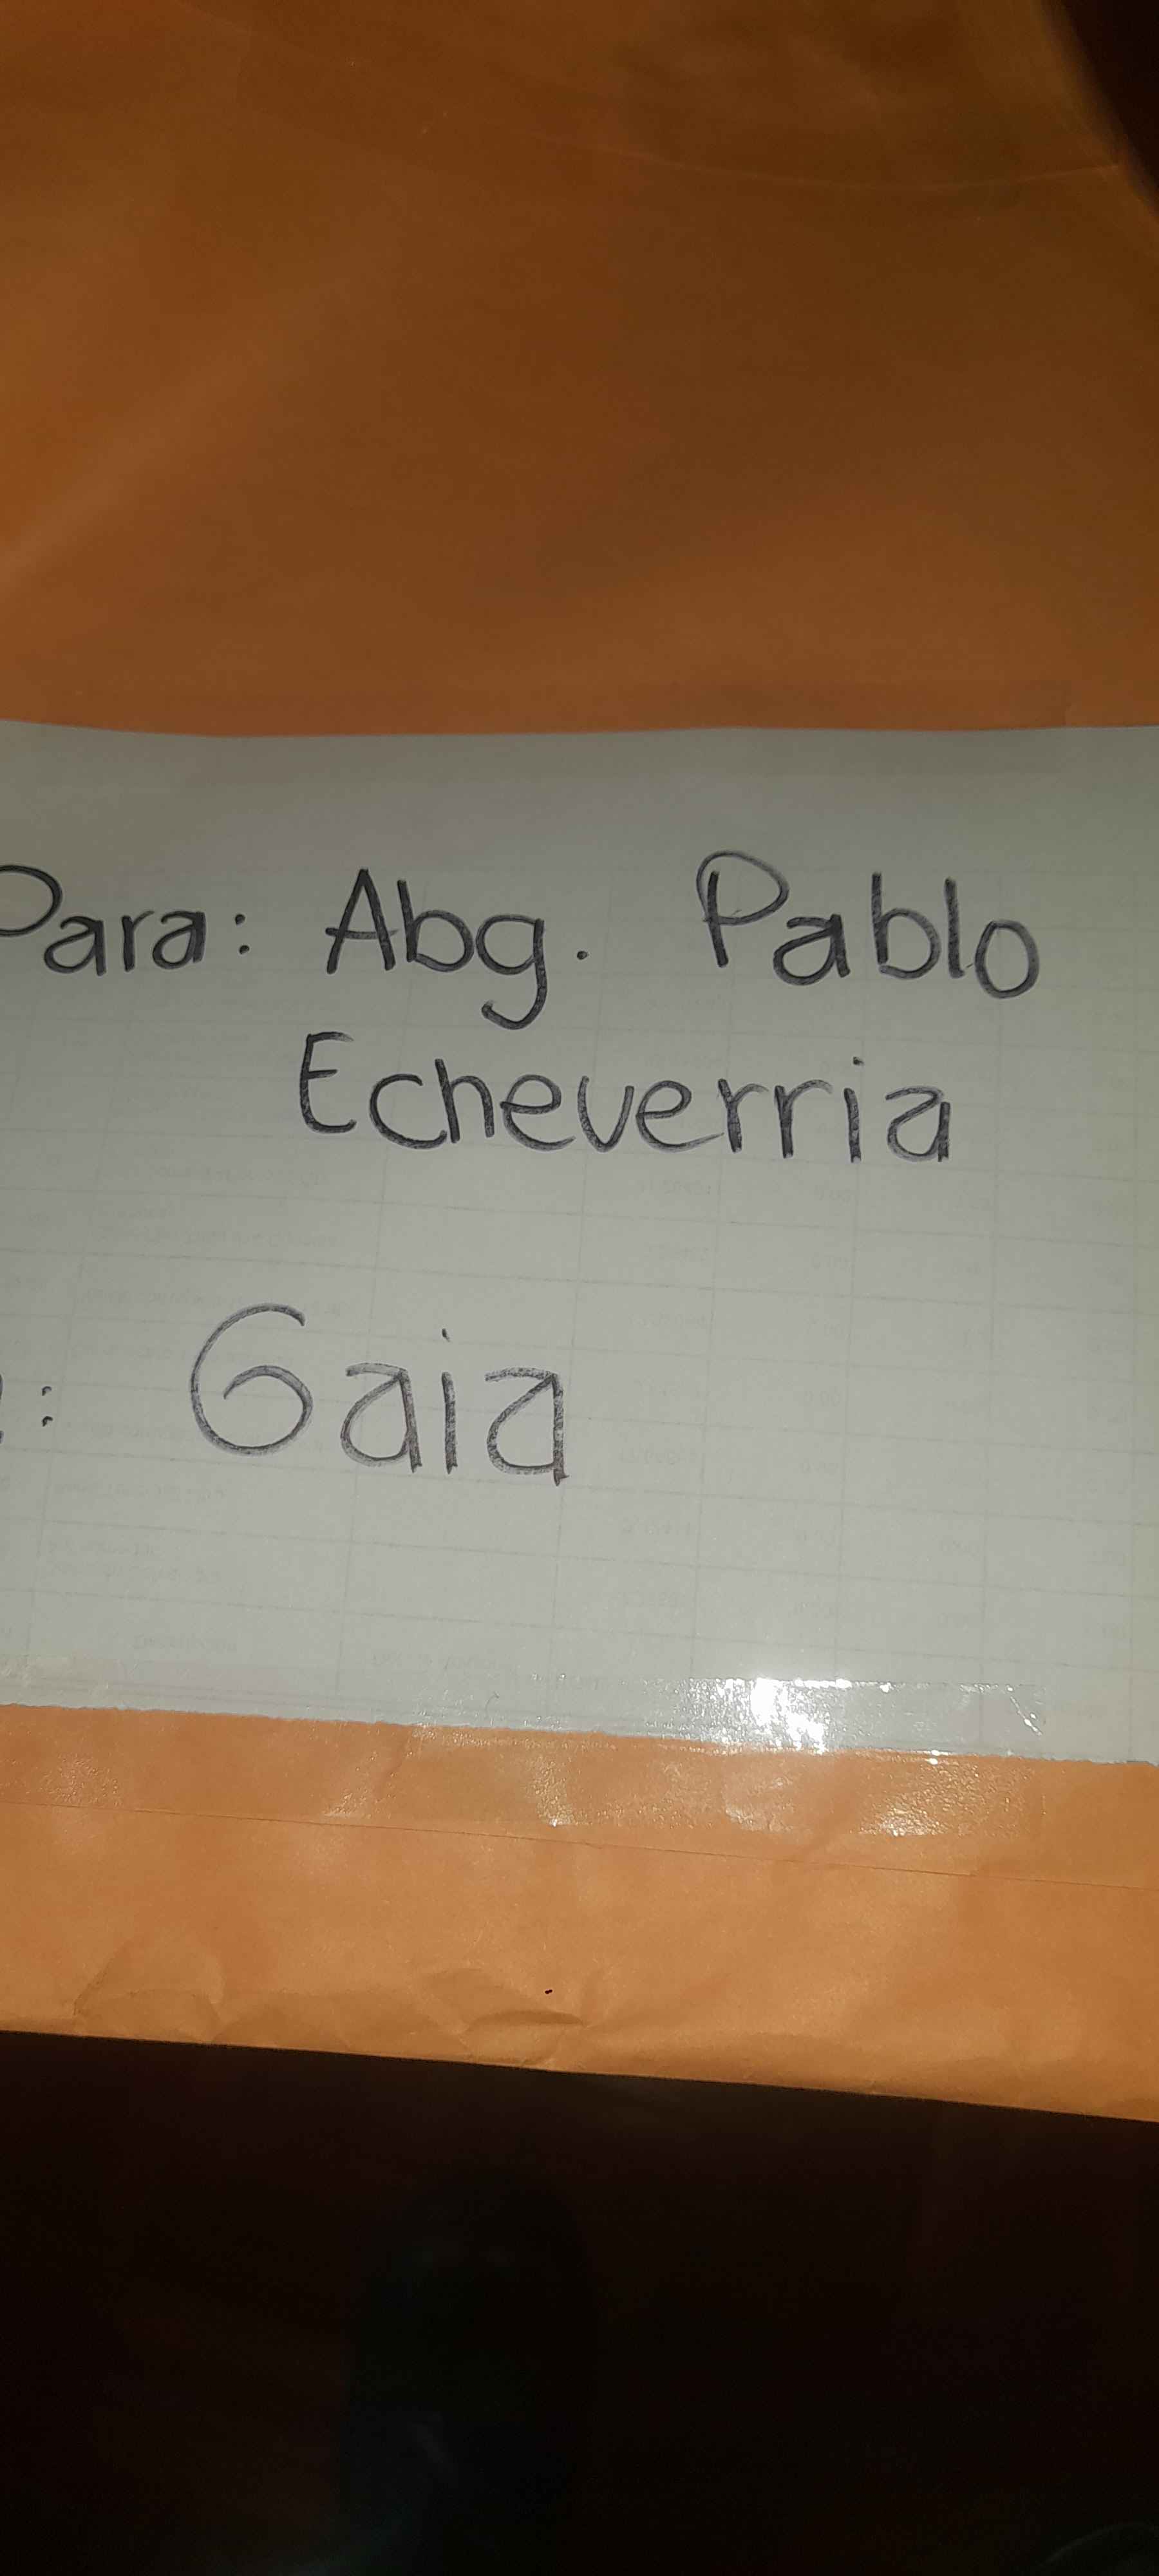 Para: Abg. Pablo
Echeverria
: Gaia